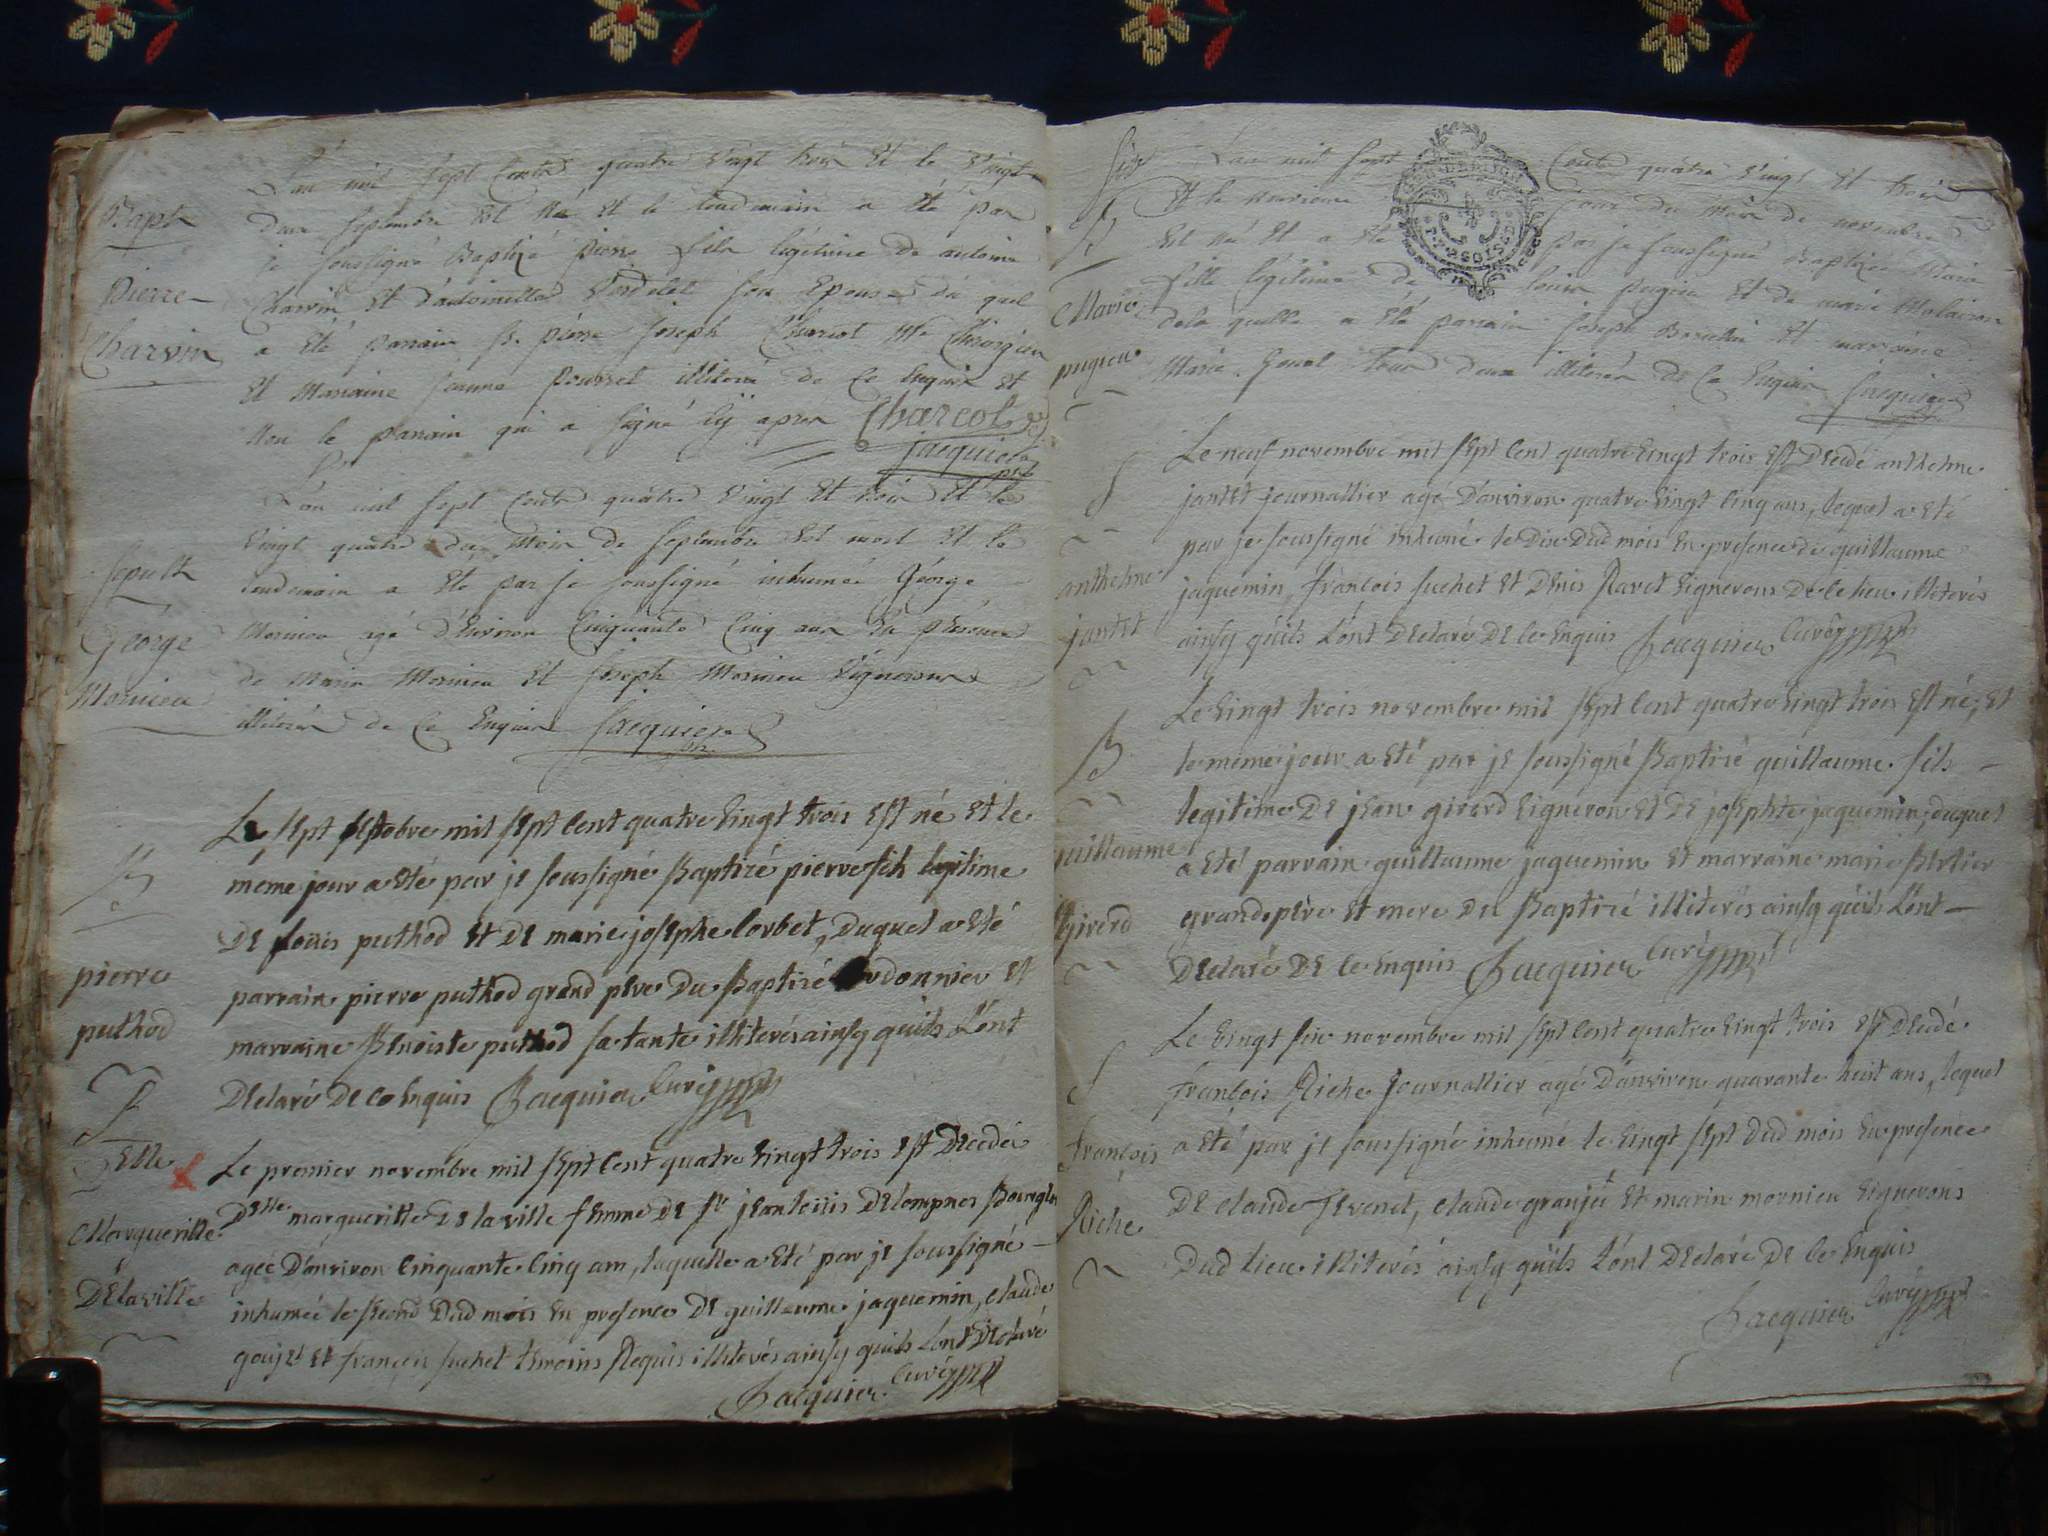 Bapt
Pierre
Charvin
L'an mil sept cents quatre vingt trois Et le vingt
deux septembre Est né Et le lendemain a été par
je soussigné Baptizé pierre fils légitime de antoine
Charvin Et d'antoinette Verdelet son Epouse du quel
a été parrain sr. pierre joseph Charcot Me Chirurgien
Et Marraine jeanne pourret illiteré de Ce Enquis Et
Non le parrain qui a signé Cy apres Charcot
jacquier
ptre
sepult
George
Mornieu
L'an mil sept cents quatre vingt Et trois Et le
vingt quatre du Mois de septembre Est mort Et le
lendemain a été par je soussigné inhumé George
Mornieu agé d'Environ Cinquante Cinq ans En présence
de Marin Mornieu Et joseph Mornieu Vignerons
illiterés de Ce Enquis jacquier
B
pierre
puthod
Le sept octobre mil sept cent quatre vingt trois Est né et le
meme jour a eté par je soussigné Baptizé pierre fils legitime
De louis puthod et De marie josephe Corbet, Duquel a eté
parrain pierre puthod grand pere Du Baptizé Cordonnier et
marraine Benoiste puthod sa tante illiterés ainsy quils L'ont
Declaré De ce Enquis Jacquier Curé
S
Delle
Marguerite
Delaville
Le premier novembre mil sept cent quatre vingt trois est Decedée
Delle marguerite De la ville femme De Sr jean louis Delompnes Bourgeois
agée D'anviron Cinquante Cinq ans, laquelle a eté par je soussigné
inhumée le second Dud mois en presence De guillaume jaquemin, claude
goujet et françois suchet temoins Requis illiterés ainsy quils L'ont Declaré
Jacquier Curé
B
Marie
pugieu
L'an mil sept Cents quatre vingt Et trois
Et le jour du Mois de novembre
Est né Et a été par je soussigné Baptizée Marie
fille légitime de louis pugieu Et de marie Molairon
dela quelle a été parrain joseph Et marraine
Marie Tous deux illiterés de Ce Enquis jacquier
S
anthelme
jantet
Le neuf novembre mil sept cent quatre vingt trois est Decedé anthelme
jantet journallier agé D'anviron quatre vingt cinq ans, lequel a eté
par je soussigné inhumé le Dix Dud mois en presence de guillaume
jaquemin, françois suchet et Denis Ravet vignerons De ce lieu illiterés
ainsy quils L'ont Declaré De ce enquis Jacquier Curé
B
guillaume
Girerd
Le vingt trois novembre mil sept cent quatre vingt trois est né, et
le meme jour a eté par je soussigné Baptizé guillaume fils
legitime De jean girerd vigneron et De josephte jaquemin, duquel
a eté parrain guillaume jaquemin et marraine marie Bertier
grand pere et mere Du Baptizé illiterés ainsy quils L'ont
Declaré De ce enquis Jacquier Curé
S
françois
Riche
Le vingt six novembre mil sept cent quatre vingt trois est Decedé
françois Riche Journallier agé D'anviron quarante huit ans, lequel
a eté par je soussigné inhumé le vingt sept Dud mois en presence
De claude Jevenet, claude granju et marin mornieu vignerons
Dud lieu illiterés ainsy quils L'ont Declaré De ce enquis
Jacquier Curé